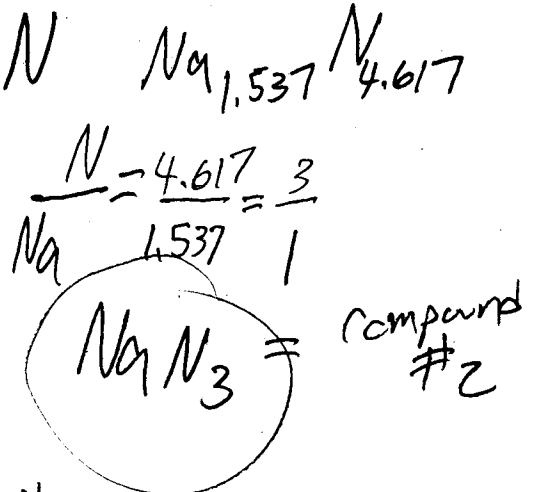 N Na1.537 N4.617
N/Na = 4.617/1.537 = 3/1
NaN3 = compound
#2